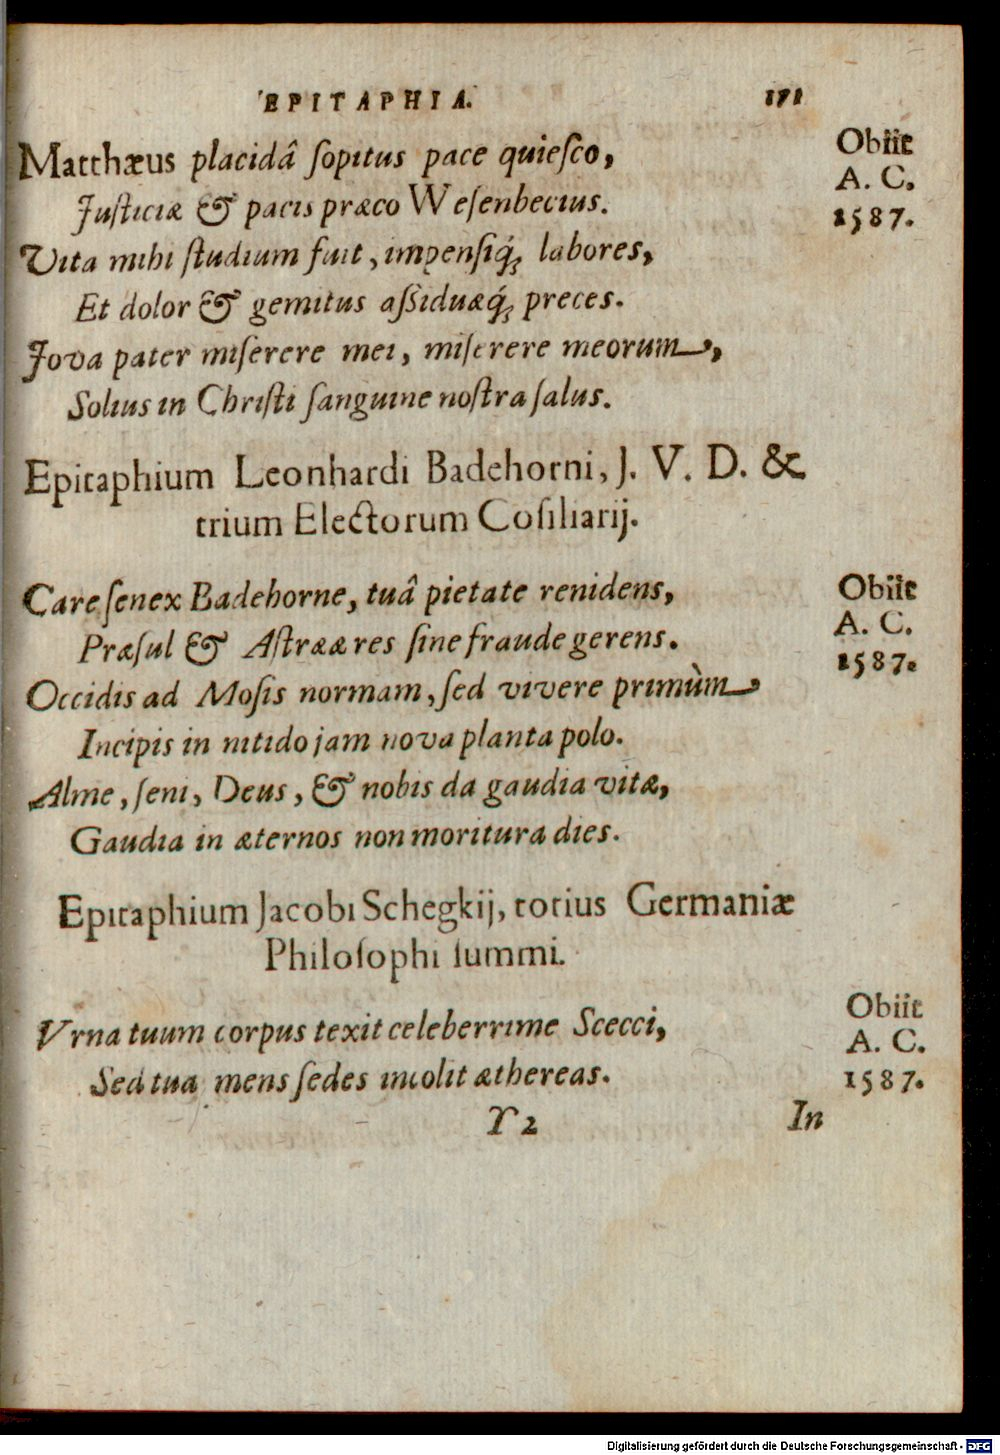 EPITAPHIA. 171
Matthæus placidâ ſopitus pace quieſco,
Juſticiæ & pacis præco Weſenbecius.
Vita mihi ſtudium fuit, impenſiq́; labores,
Et dolor & gemitus aſſiduæq́; preces.
Jova pater miſerere mei, miſerere meorum,
Solius in Chriſti ſanguine noſtra ſalus.
Obiit
A. C.
1587.
Epitaphium Leonhardi Badehorni, J. V. D. &
trium Electorum Coſiliarij.
Care ſenex Badehorne, tuâ pietate renidens,
Præſul & Aſtrææ res ſine fraude gerens.
Occidis ad Moſis normam, ſed vivere primùm
Incipis in nitido jam nova planta polo.
Alme, ſeni, Deus, & nobis da gaudia vitæ,
Gaudia in æternos non moritura dies.
Obiit
A. C.
1587.
Epitaphium Jacobi Schegkij, totius Germaniæ
Philoſophi ſummi.
Vrna tuum corpus texit celeberrime Scecci,
Sed tua mens ſedes incolit æthereas.
Obiit
A. C.
1587.
Y 2 In
Digitalisierung gefördert durch die Deutsche Forschungsgemeinschaft - DFG